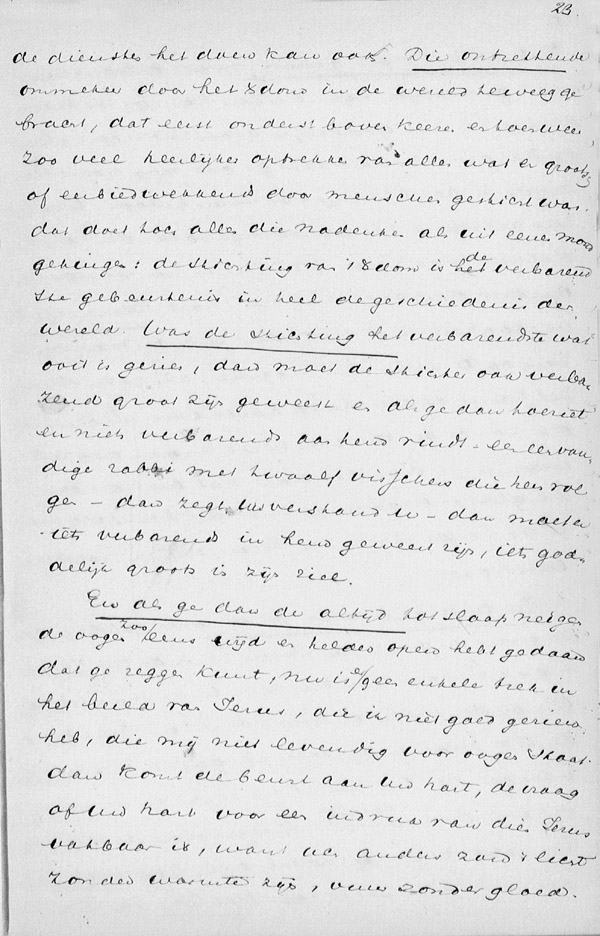 23.
de dienstes het doen kan ook. Die ontzettende
ommekeer door het χdom in de wereld teweegge
bracht, dat eerst onderst boven keeren en hoeveel
zoo veel heerlijker optrekken van alles wat er groots
of eerbiedwekkends door menschen gesticht was.
dat doet toch alles die nadenken als uit eenen mond
getuigen: de stichting van 't χdom is de verbazend
ste gebeurtenis in heel de geschiedenis der
wereld. Was de stichting het verbazendste wat
ooit is gezien, dan moet de stichter ook verba
zend groot zijn geweest en als ge dan hoort
en niets verbazends aan hem vindt - een eenvou
dige rabbi met twaalf visschers die hem vol
gen - dan zegt uw verstand u - dan moet er
iets verbazends in hem geweest zijn, iets god
delijk groots in zijn ziel.
En als ge dan de altijd tot slaap neigen
de oogen zoo eens wijd en helder open hebt gedaan
dat ge zeggen kunt, nu is er geen enkele trek in
het beeld van Jezus, die ik niet goed gezien
heb, die mij niet levendig voor oogen staat.
dan komt de beurt aan uw hart, de vraag
of uw hart voor een indruk van dien Jezus
vatbaar is, want och anders zou 't licht
zonder warmte zijn, vuur zonder gloed.